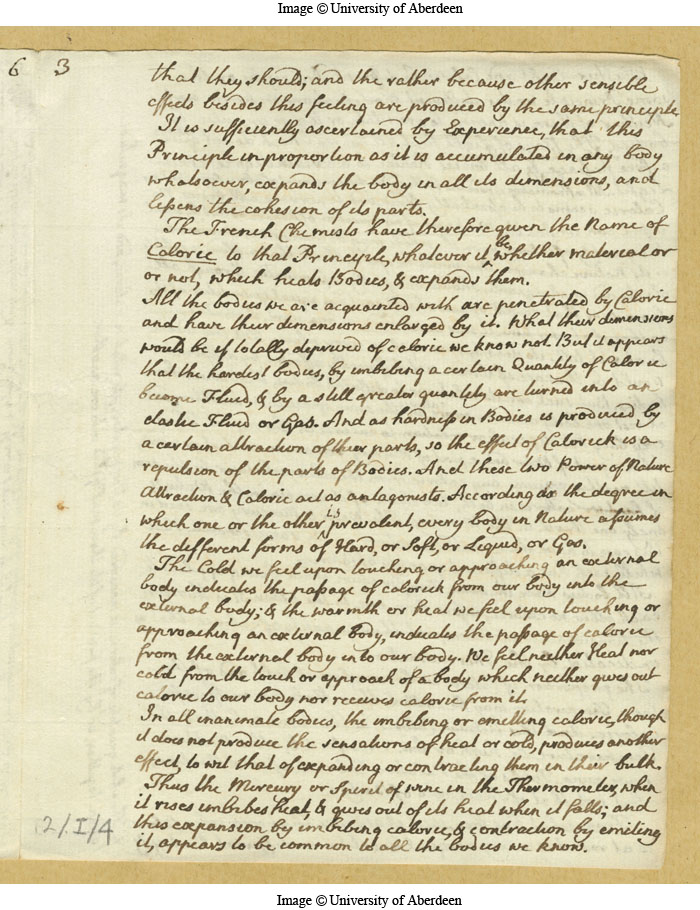 Image © University of Aberdeen
6 3
that they should; and the rather because other sensible
effects besides this feeling are produced by the same principle.
It is sufficiently ascertained by Experience, that this
Principle in proportion as it is accumulated in any body
whatsoever, expands the body in all its dimensions, and
lessens the cohesion of its parts.
The French Chemists have therefore given the Name of
Caloric to that Principle, whatever it be, whether material or
or not, which heats Bodies, & expands them.
All the bodies we are acquainted with are penetrated by Caloric
and have their dimensions enlarged by it. What their dimensions
would be if totally deprived of caloric we know not. But it appears
that the hardest bodies, by imbibing a certain Quantity of Caloric
become Fluid, & by a still greater quantity are turned into an
elastic Fluid or Gas. And as hardness in Bodies is produced by
a certain attraction of their parts, so the effect of Calorick is a
repulsion of the parts of Bodies. And these two Power of Nature
Attraction & Caloric act as antagonists. According as the degree in
which one or the other is prevalent, every body in Nature assumes
the different forms of Hard, or Soft, or Liquid, or Gas.
The Cold we feel upon touching or approaching an external
body indicates the passage of calorick from our body into the
external body; & the warmth or heat we feel upon touching or
approaching an external body, indicates the passage of caloric
from the external body into our body. We feel neither Heat nor
cold from the touch or approach of a body which neither gives out
caloric to our body nor receives caloric from it.
In all inanimate bodies, the imbibing or emitting caloric, though
it does not produce the sensations of heat or cold, produces another
effect, to wit that of expanding or contracting them in their bulk.
Thus the Mercury or Spirit of wine in the Thermometer, when
it rises imbibes heat, & gives out of its heat when it falls; and
this expansion by imbibing caloric, & contraction by emiting
it, appears to be common to all the bodies we know.
2/I/4
Image © University of Aberdeen